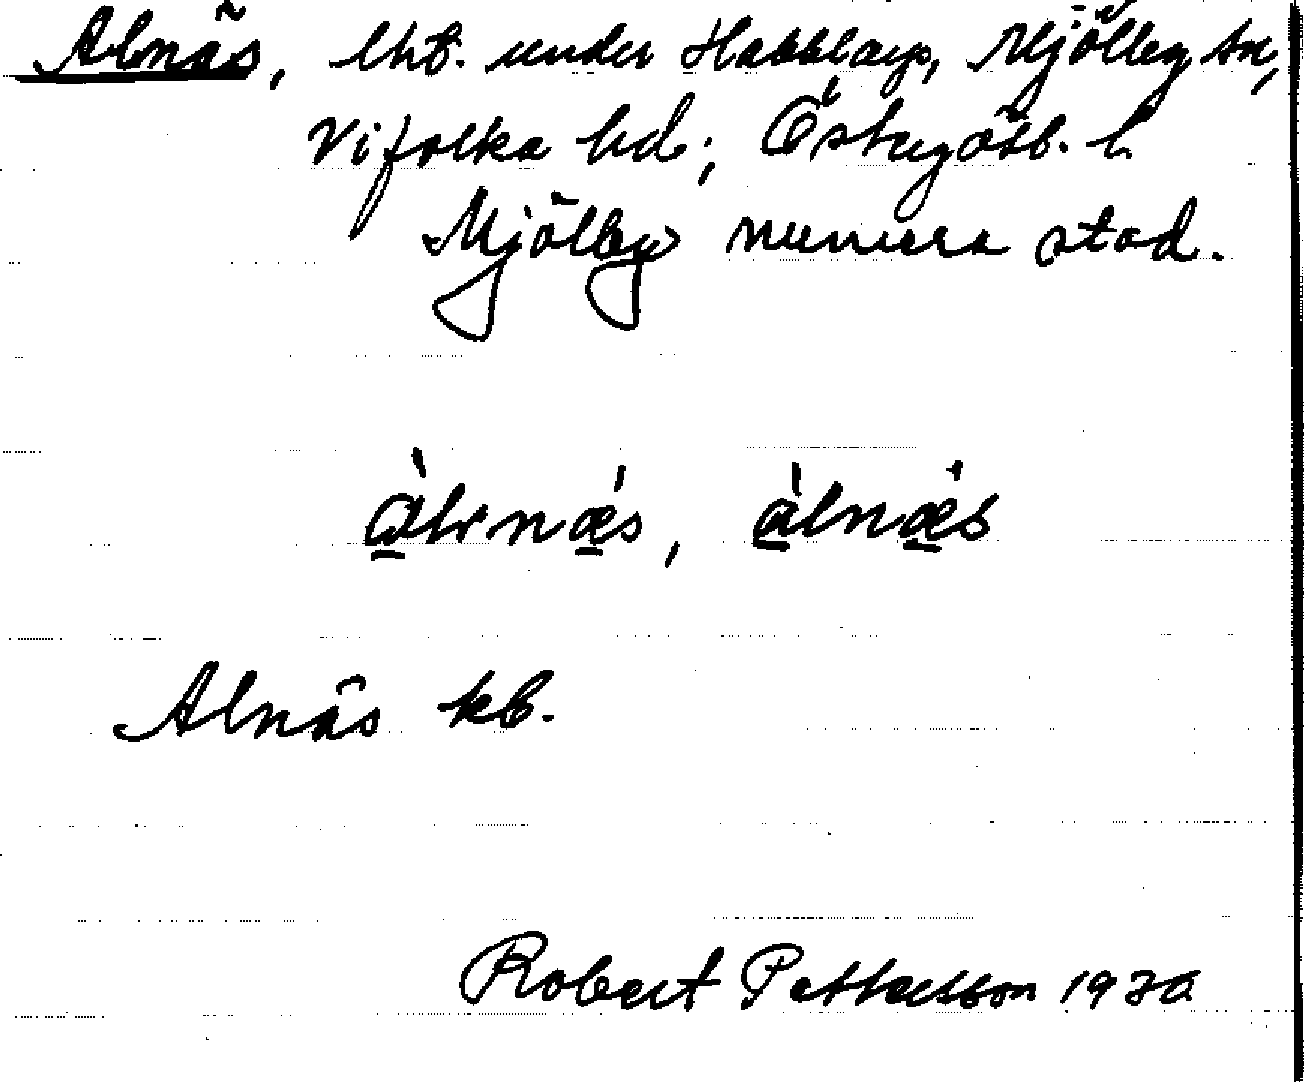 Alnäs, lht. under Hassla, Mjölby sn,
Vifolka hd; Östergötl. l.
Mjölby numera stad.
àlnæ̀s, àlnæ̀s
Alnäs kb.
Robert Pettersson 1930